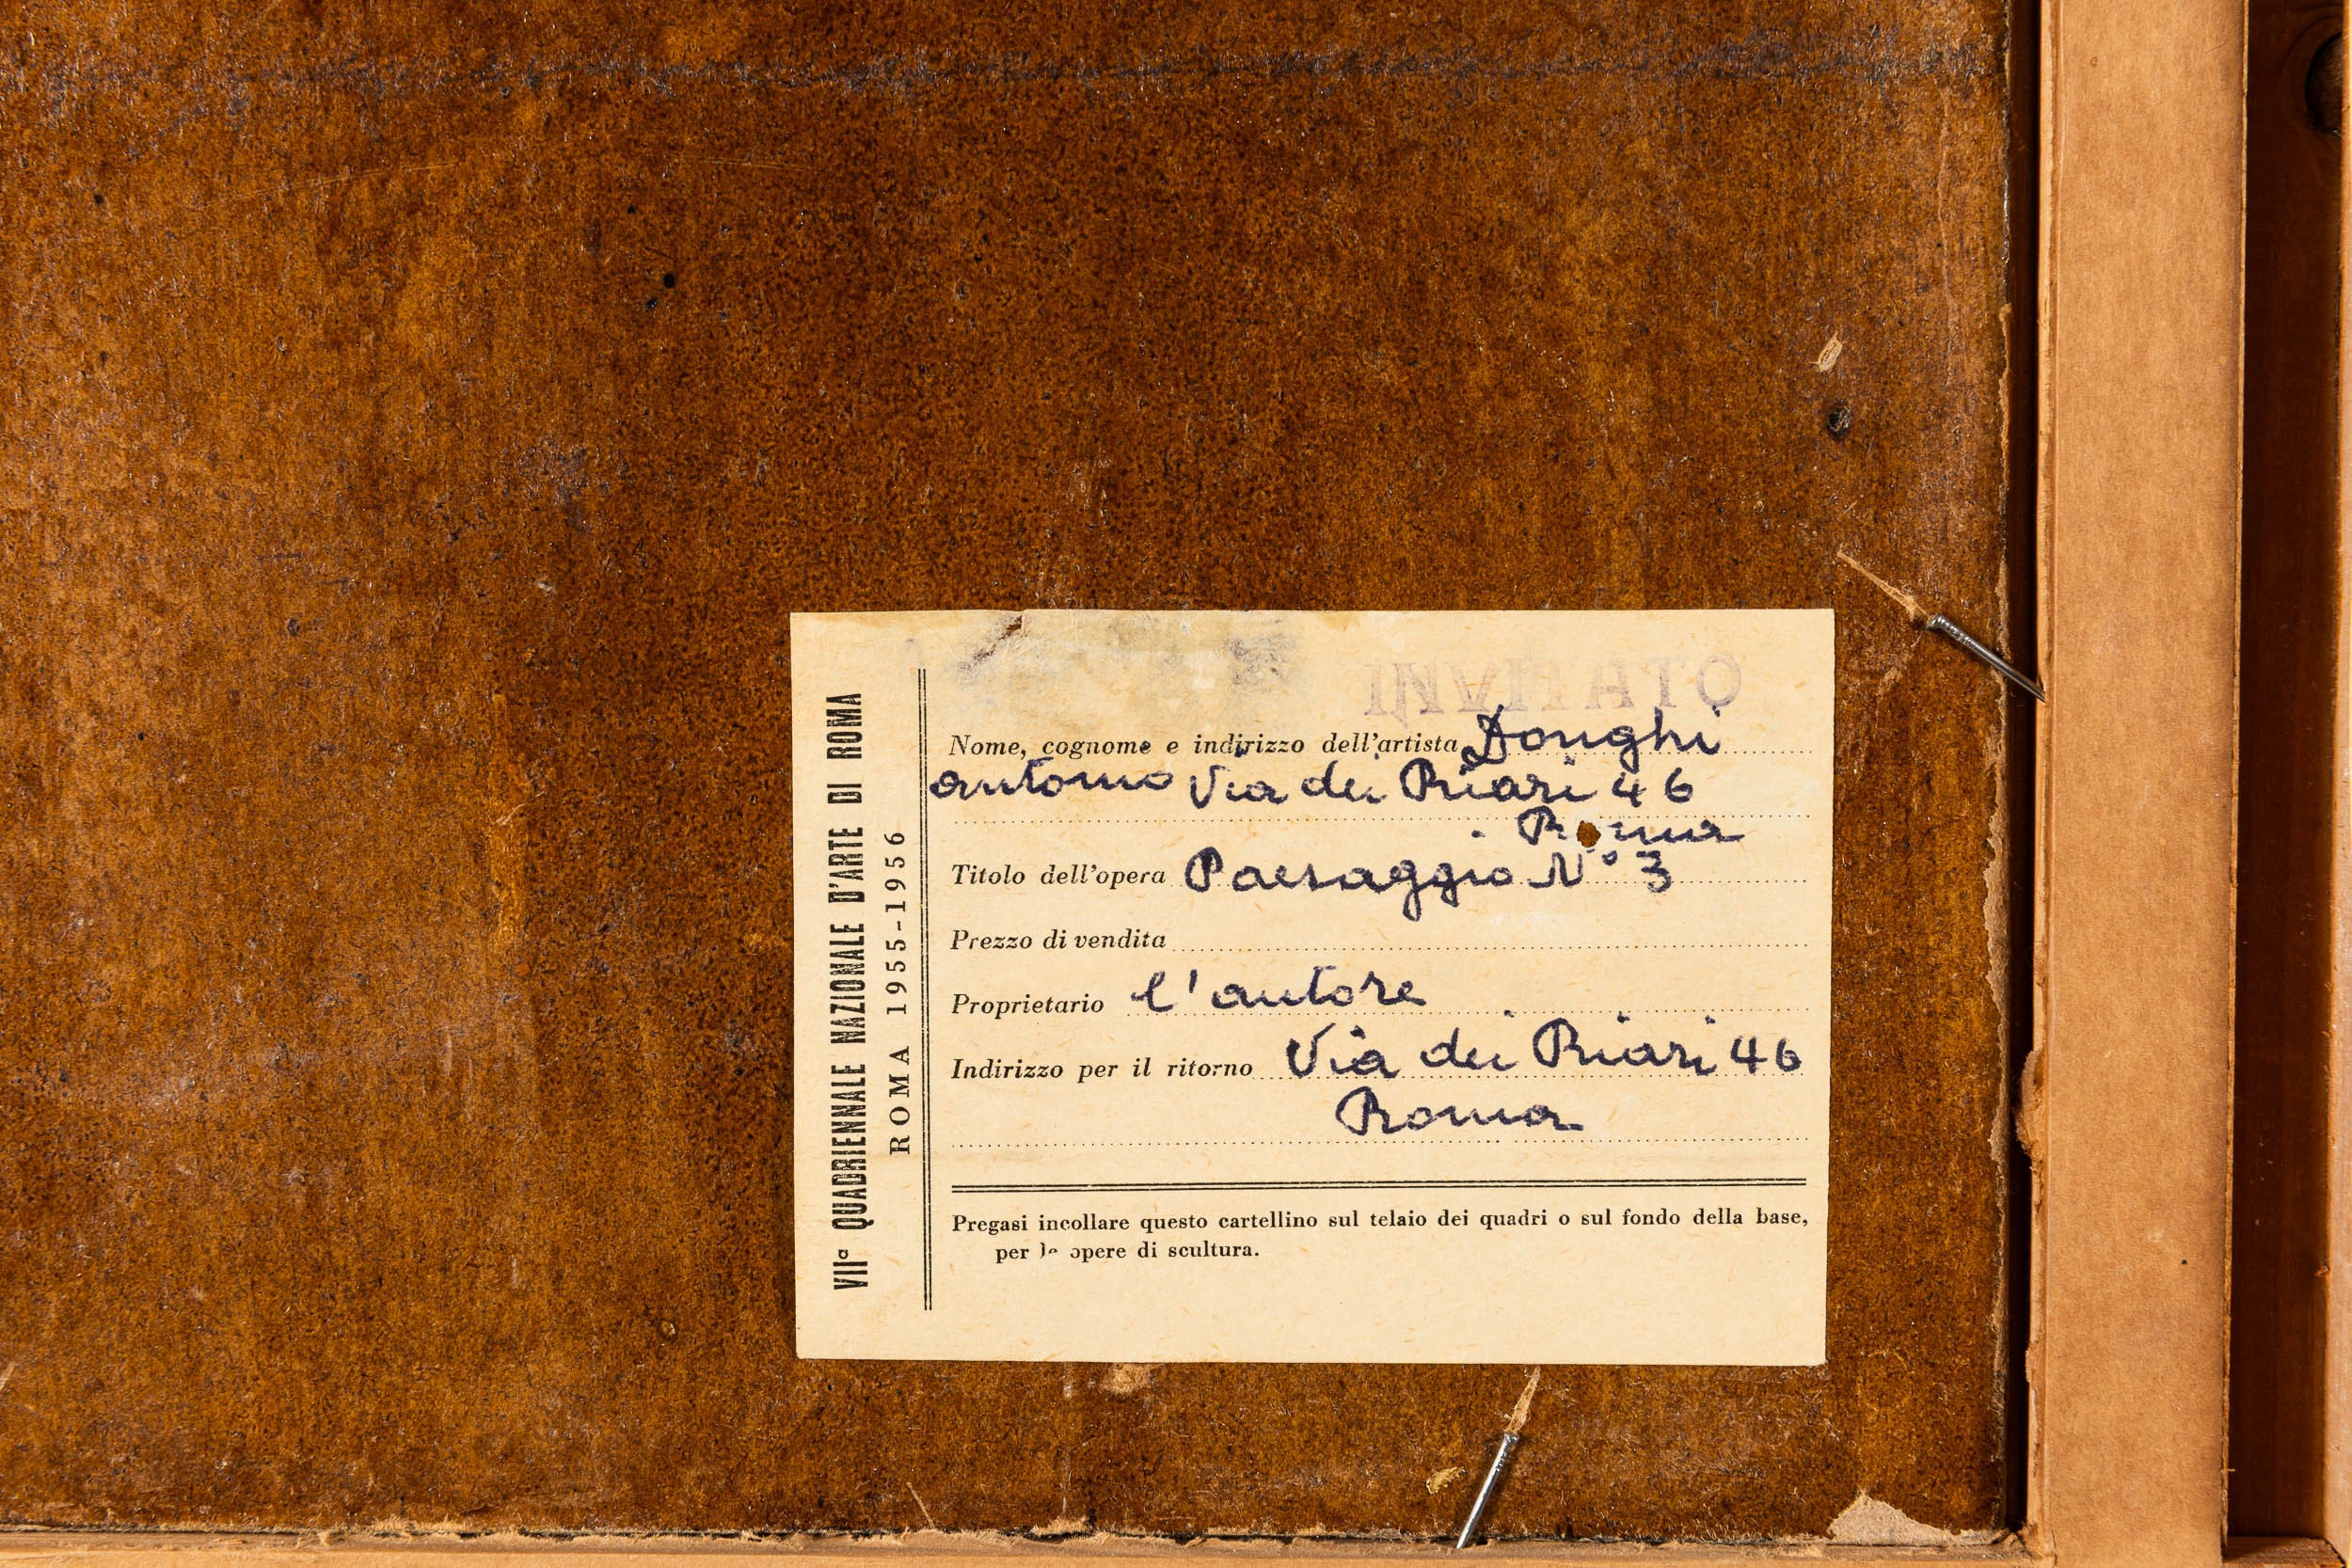 VIIa QUADRIENNALE NAZIONALE D'ARTE DI ROMA
ROMA 1955-1956
Nome, cognome e indirizzo dell'artista Donghi
antonio Via dei Riari 46
Roma
Titolo dell'opera Paesaggio N° 3
Prezzo di vendita
Proprietario l'autore
Indirizzo per il ritorno Via dei Riari 46
Roma
Pregasi incollare questo cartellino sul telaio dei quadri o sul fondo della base,
per le opere di scultura.